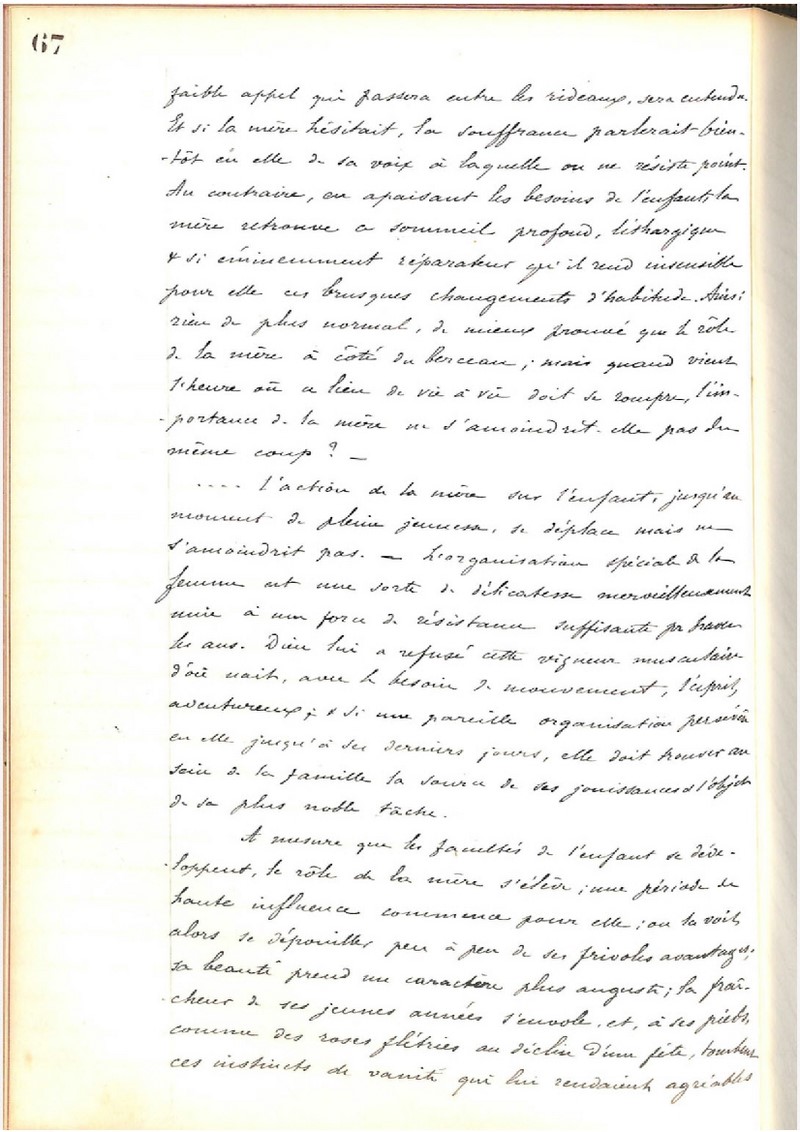 67
faible appel qui passera entre les rideaux, sera entendu.
Et si la mère hésitait, la souffrance parlerait bien-
-tôt en elle de sa voix à laquelle on ne résiste point.
Au contraire, en apaisant les besoins de l'enfant, la
mère retrouve ce sommeil profond, léthargique
& si éminemment réparateur qu'il rend insensible
pour elle ces brusques changements d'habitude. Ainsi
rien de plus normal, de mieux prouvé que le rôle
de la mère à côté du berceau ; mais quand vient
l'heure où ce lien de vie à vie doit se rompre, l'im-
-portance de la mère ne s'amoindrit-elle pas du
même coup ? —
.... L'action de la mère sur l'enfant, jusqu'au
moment de pleine jeunesse, se déplace mais ne
s'amoindrit pas. — L'organisation spéciale de la
femme est une sorte de délicatesse merveilleusement
unie à une force de résistance suffisante pr braver
les ans. Dieu lui a refusé cette vigueur musculaire
d'où nait, avec le besoin de mouvement, l'esprit
aventureux ; & si une pareille organisation persévère
en elle jusqu'à ses derniers jours, elle doit trouver au
sein de la famille la source de ses jouissances & l'objet
de sa plus noble tâche.
A mesure que les facultés de l'enfant se déve-
-loppent, le rôle de la mère s'élève ; une période de
haute influence commence pour elle ; on la voit
alors se dépouiller peu à peu de ses frivoles avantages ;
sa beauté prend un caractère plus auguste ; la fraî-
-cheur de ses jeunes années s'envole, et, à ses pieds,
comme des roses flétries au déclin d'une fête, tombent
ces instincts de vanité qui lui rendaient agréables